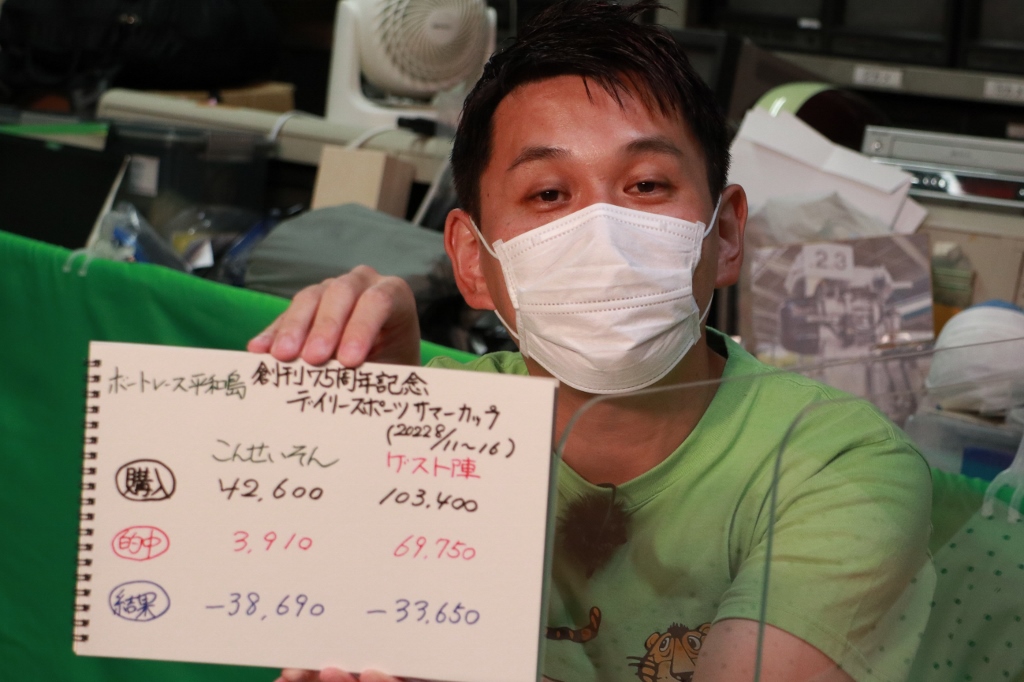 ボートレース平和島 創刊75周年記念
デイリースポーツサマーカップ
(2022 8/11~16)
こんせいそん ゲスト陣
購入 42,600 103,400
的中 3,910 69,750
結果 -38,690 -33,650
23